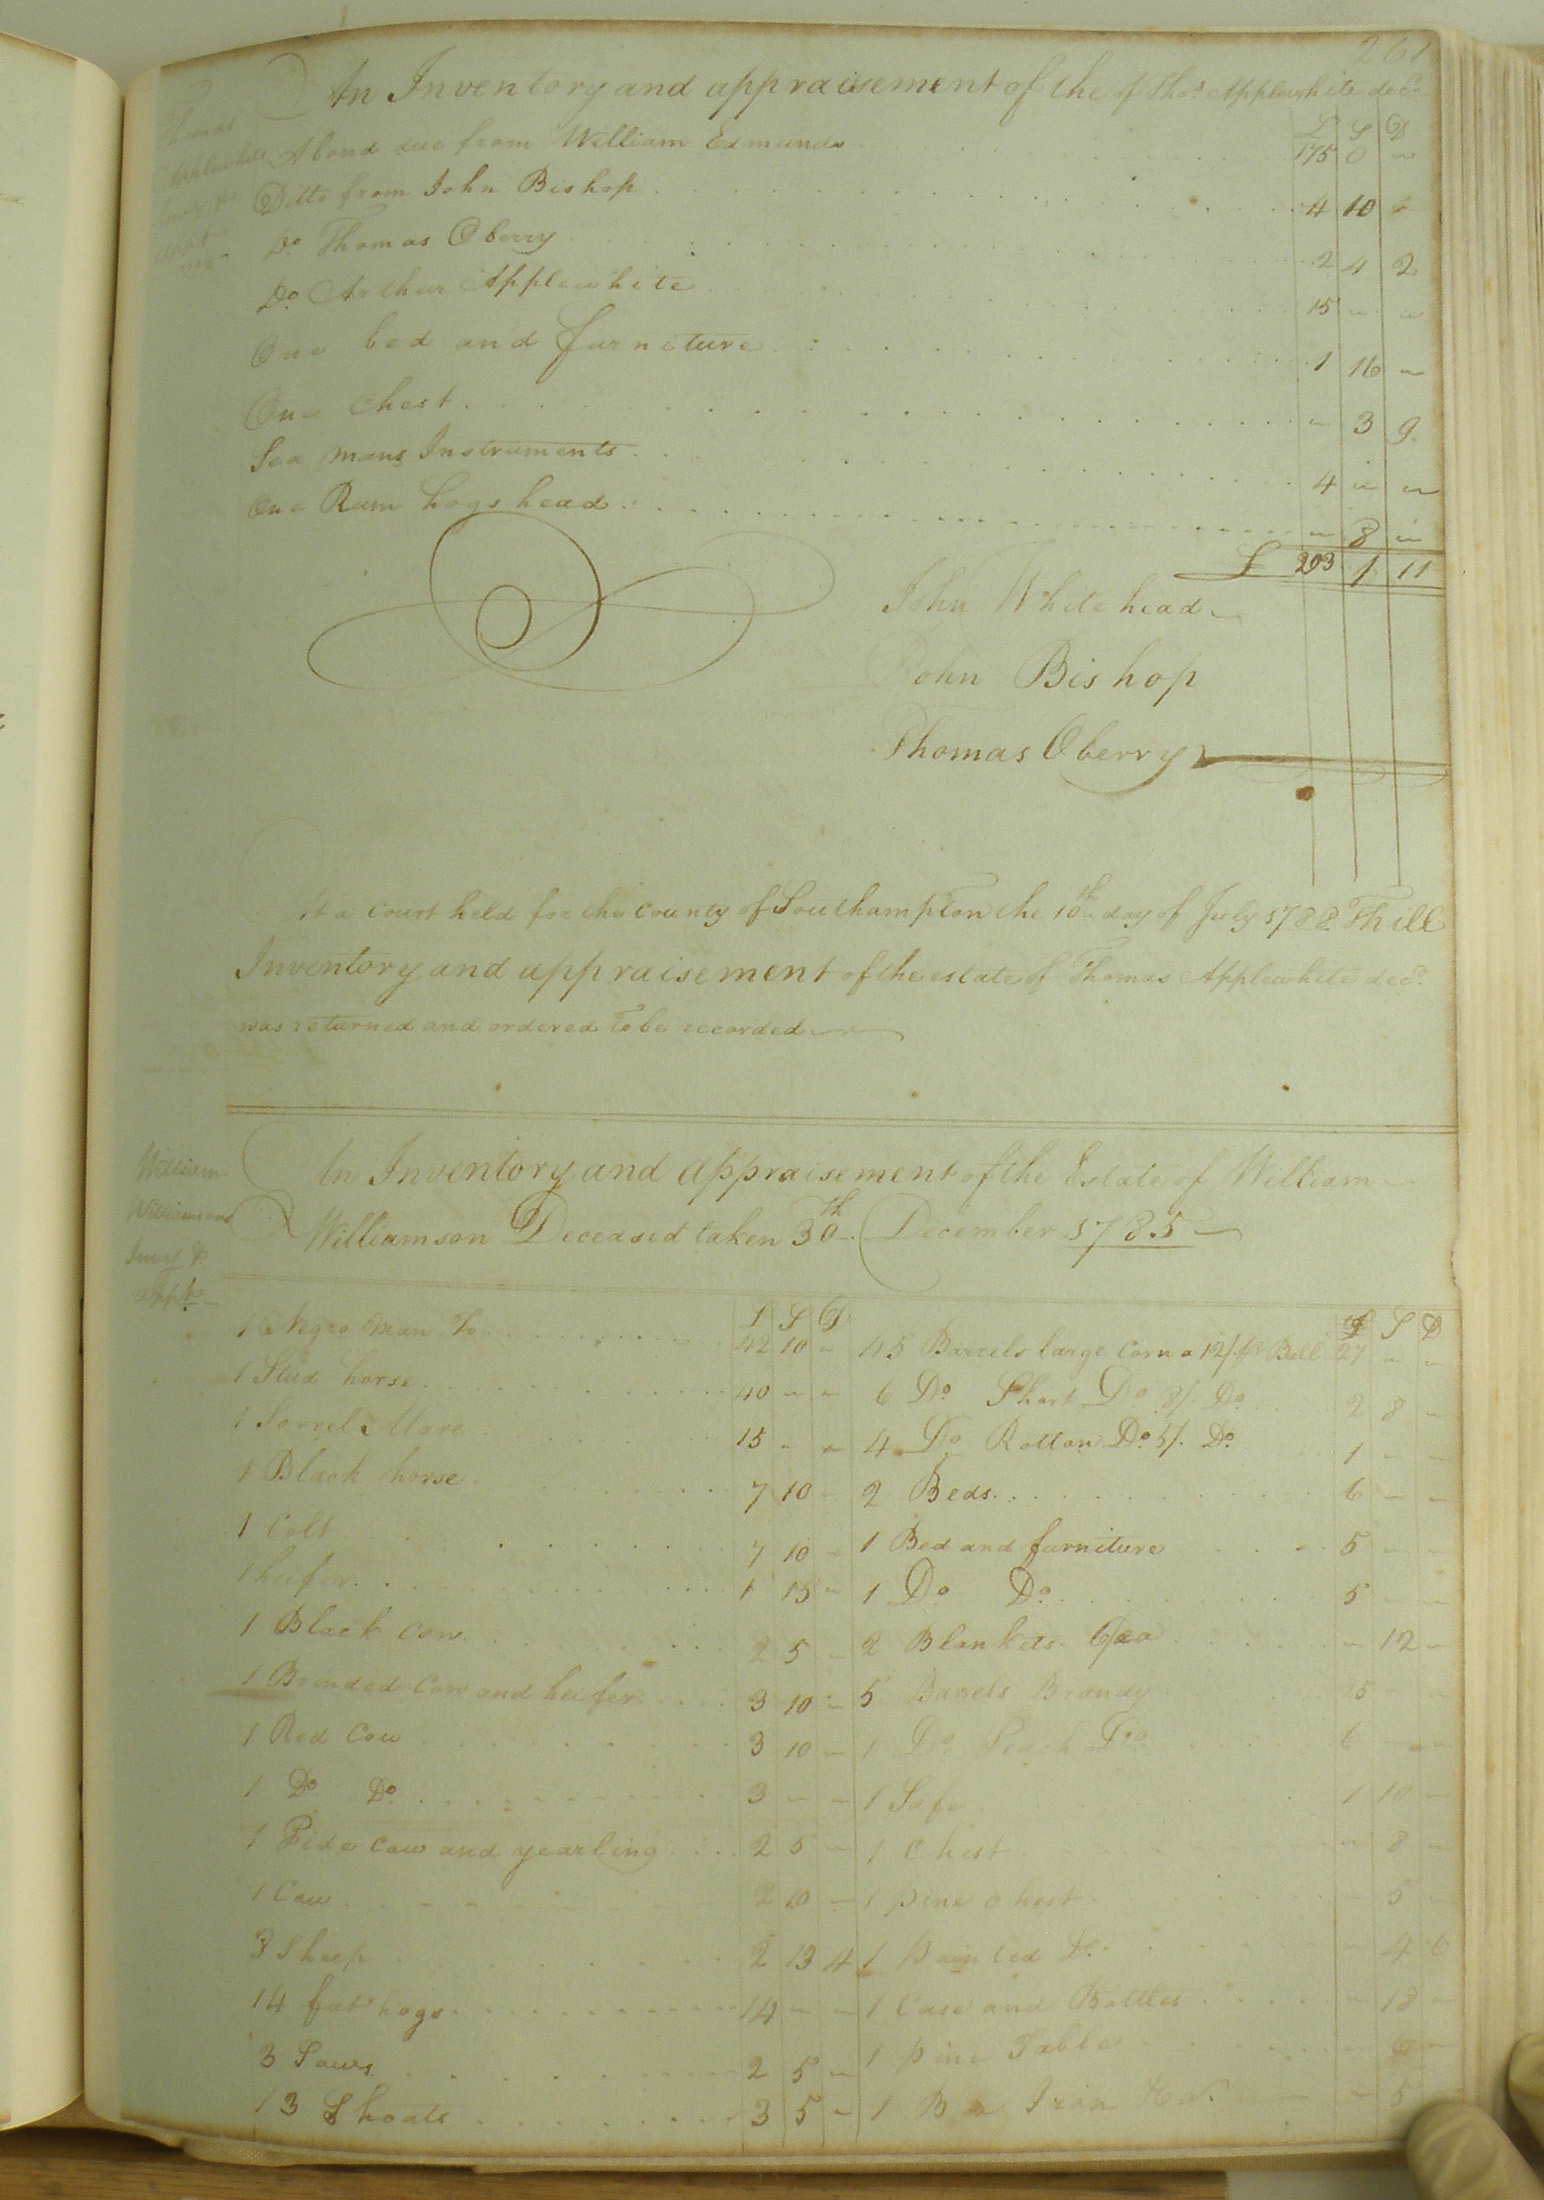 261
An Inventory and appraisement of the of Thos. Applewhite decd.
Thomas
Applewhite
Invy &
appt
£ S D
A bond due from William Edmunds 175 0 "
Ditto from John Bishop 4 10 "
Do Thomas Oberry 2 4 2
Do Arthur Applewhite 15 " "
One bed and furniture 1 16 "
One Chest " 3 9
Sea mans Instruments 4 " "
One Rum hogshead " 8 "
£ 203 1 11
John Whitehead
John Bishop
Thomas Oberry
At a court held for the county of Southampton the 10th day of July 1788 This
Inventory and appraisement of the estate of Thomas Applewhite decd.
was returned and ordered to be recorded
William
Williamsons
Invy &
appt
An Inventory and appraisement of the Estate of William
Williamson Deceased taken 30th December 1785
£ S D £ S D
1 Negro Man To 42 10 " 45 Barrels large Corn a 12/ pr Ball 27 " "
1 Stud horse 40 " " 6 Do Short Do 8/. Do 2 8 "
1 Sorrel Mare 15 " " 4 Do Rotton Do 5/. Do 1 " "
1 Black horse 7 10 " 2 Beds 6 " "
1 Colt 7 10 " 1 Bed and furniture 5 " "
1 heifer 1 15 " 1 Do Do 5 " "
1 Black Cow 2 5 " 2 Blankets " 12 "
1 Brinded Cow and heifer 3 10 " 5 Barrels Brandy 15 " "
1 Red Cow 3 10 " 1 Do Peach Do 6 " "
1 Do Do 3 " " 1 Safe 1 10 "
1 Pide Cow and yearling 2 5 " 1 Chest " 8 "
1 Cow 2 10 " 1 pine chest " 5 "
8 Sheep 2 13 4 1 painted Do " 4 6
14 fat hogs 14 " " 1 Case and Bottles " 18 "
3 Sows 2 5 " 1 pine Table " 6 "
13 Shoats 3 5 " 1 Iron " 5